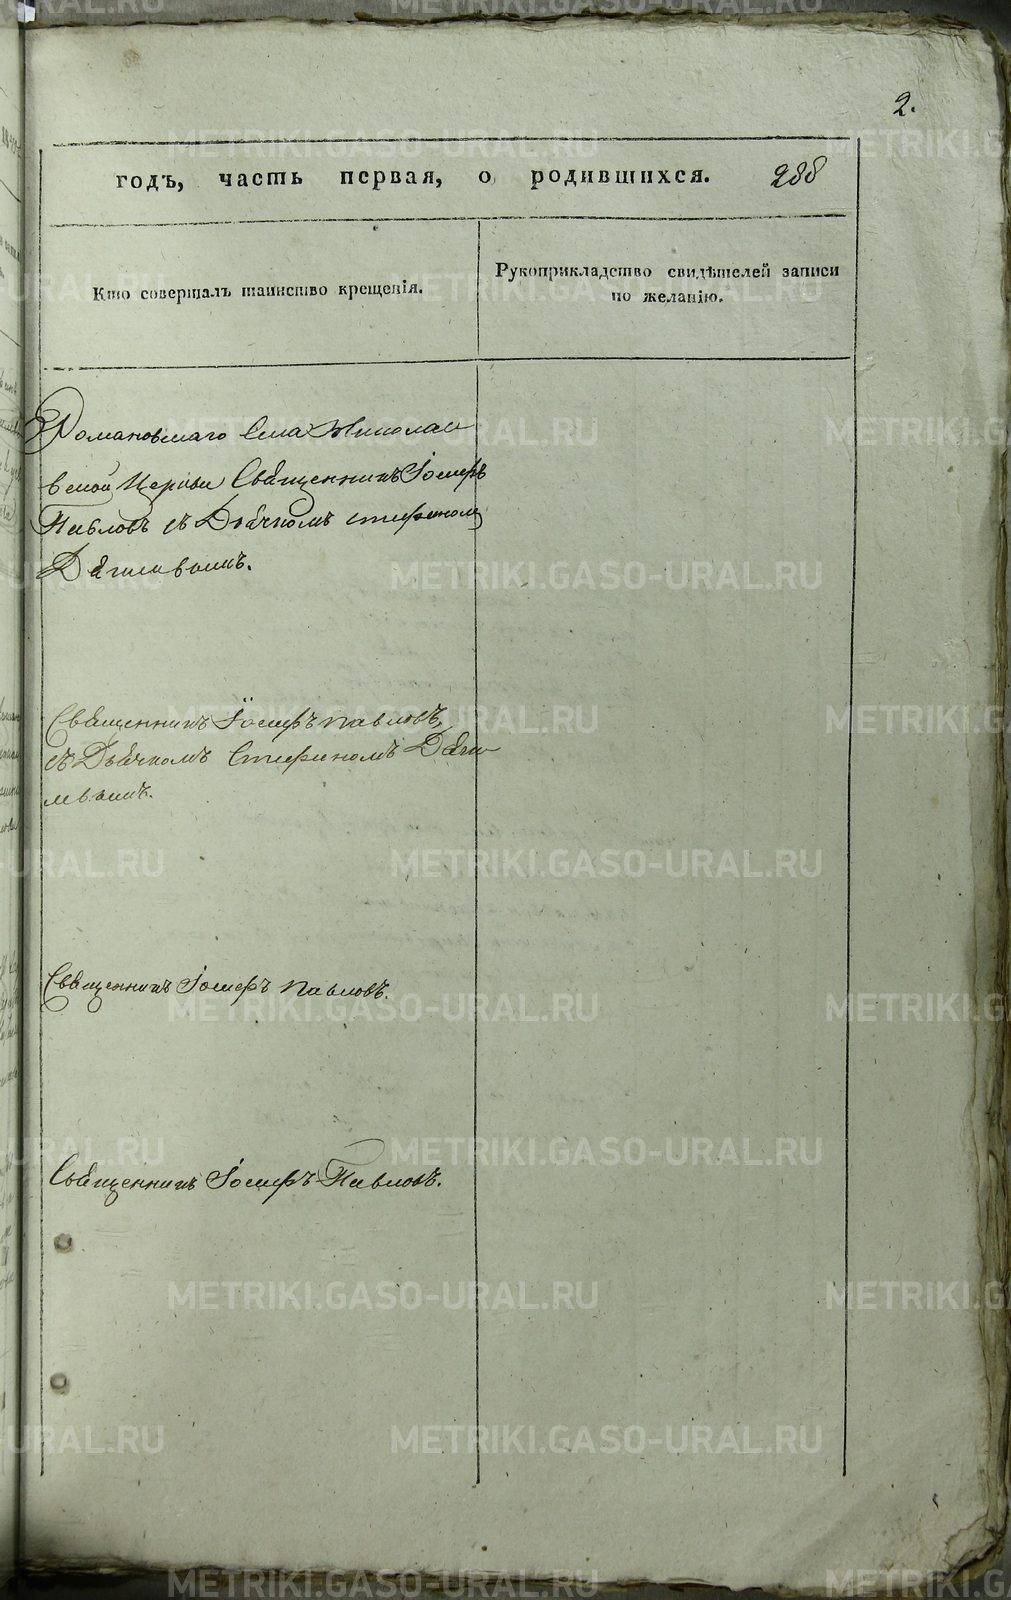 2.
годъ, часть первая, о родившихся. 288
Кто совершалъ таинство крещенія.
Рукоприкладство свидѣтелей записи
по желанію.
Романовскаго Села Николаи
вской Церкви Священникъ Іосифъ
Павловъ съ Дьячкомъ Стефаномъ
Дягилевымъ.
Священникъ Іосифъ Павловъ
съ Дьячкомъ Стефаномъ Дяги
левымъ.
Священникъ Іосифъ Павловъ.
Священникъ Іосифъ Павловъ.
METRIKI.GASO-URAL.RU